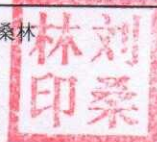 桑林
刘桑
林印